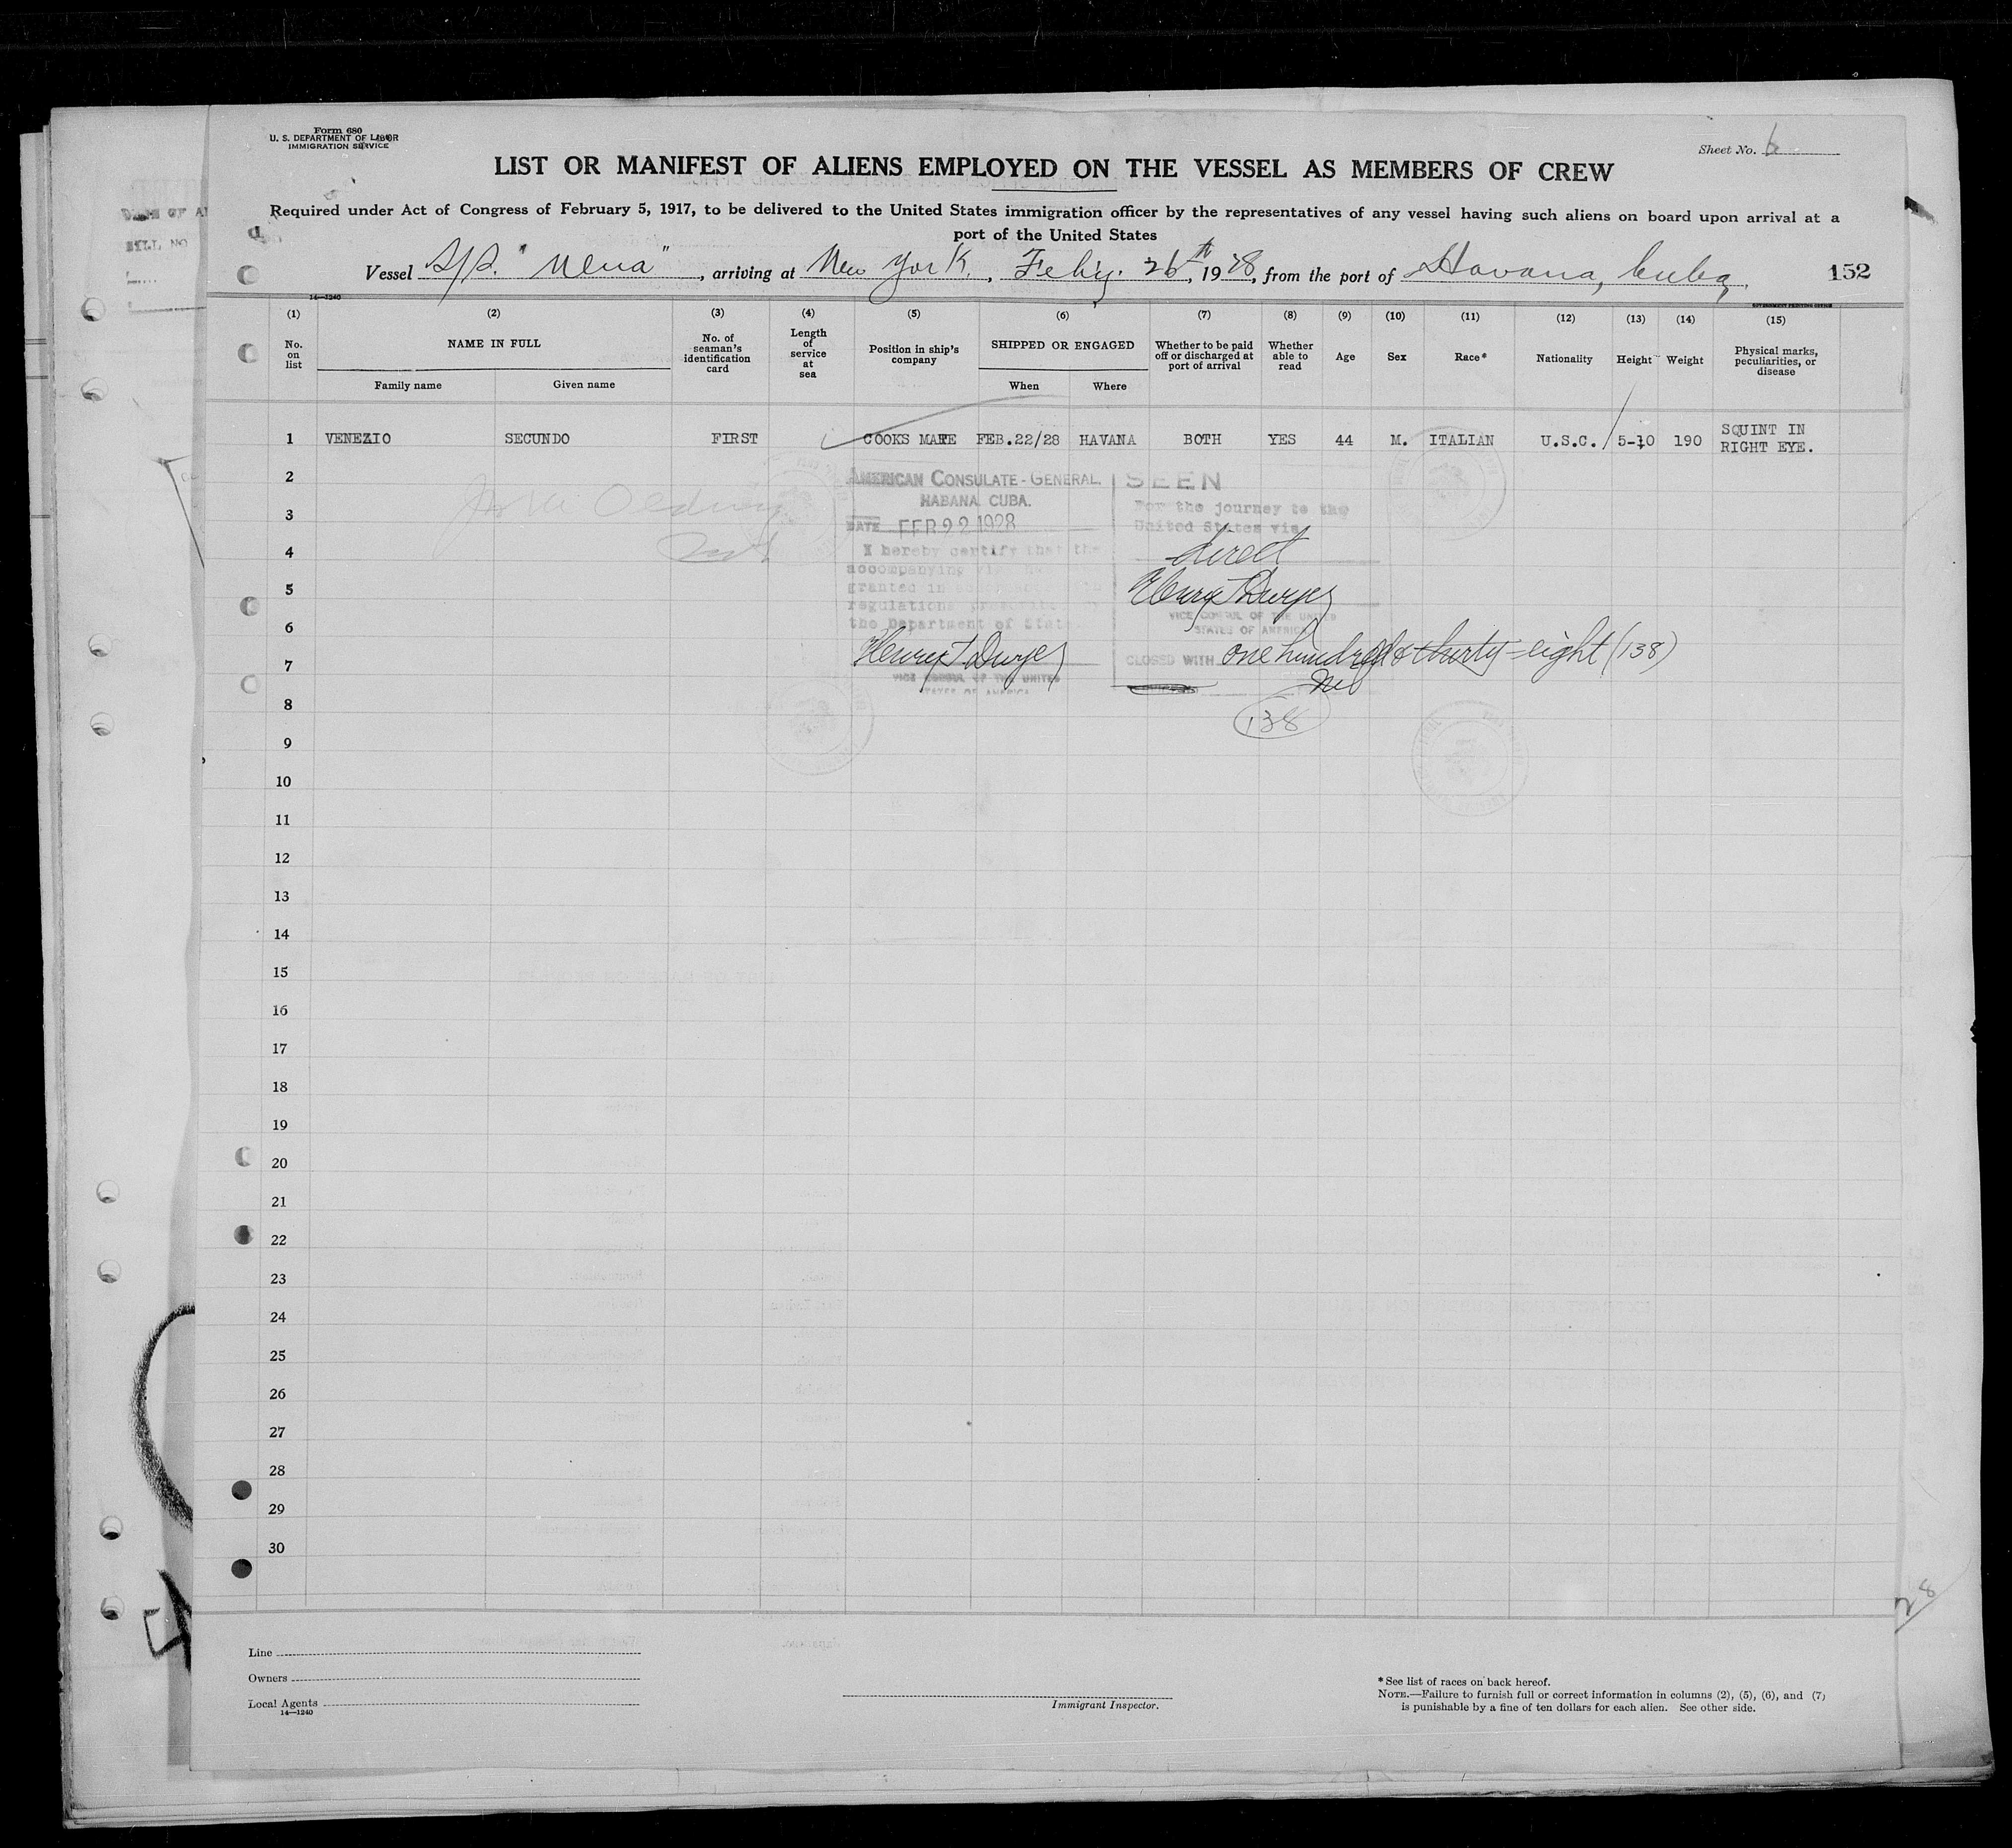 Form 680
U. S. DEPARTMENT OF LABOR
IMMIGRATION SERVICE
Sheet No. 6
LIST OR MANIFEST OF ALIENS EMPLOYED ON THE VESSEL AS MEMBERS OF CREW
Required under Act of Congress of February 5, 1917, to be delivered to the United States immigration officer by the representatives of any vessel having such aliens on board upon arrival at a
port of the United States
Vessel S/S. "Nena", arriving at New York, Feb'y. 26th, 1928, from the port of Havana, Cuba,
152
14—1240
GOVERNMENT PRINTING OFFICE
(1) (2) (3) (4) (5) (6) (7) (8) (9) (10) (11) (12) (13) (14) (15)
No. on list NAME IN FULL No. of seaman's identification card Length of service at sea Position in ship's company SHIPPED OR ENGAGED Whether to be paid off or discharged at port of arrival Whether able to read Age Sex Race* Nationality Height Weight Physical marks, peculiarities, or disease
Family name Given name When Where
1 VENEZIO SECUNDO FIRST COOKS MATE FEB.22/28 HAVANA BOTH YES 44 M. ITALIAN U.S.C. 5-10 190 SQUINT IN RIGHT EYE.
2
3
4
5
6
7
8
9
10
11
12
13
14
15
16
17
18
19
20
21
22
23
24
25
26
27
28
29
30
AMERICAN CONSULATE-GENERAL.
HABANA, CUBA.
DATE FEB 22 1928
I hereby certify that the
accompanying
granted in
regulations prescribed by
the Department of State
Henry T. Dwyer
VICE CONSUL OF THE UNITED
STATES OF AMERICA
SEEN
For the journey to the
United States via
direct
Henry T. Dwyer
VICE CONSUL OF THE UNITED
STATES OF AMERICA
CLOSED WITH one hundred & thirty-eight (138)
138
28
Line
Owners
Local Agents
14—1240
Immigrant Inspector.
* See list of races on back hereof.
NOTE.—Failure to furnish full or correct information in columns (2), (5), (6), and (7)
is punishable by a fine of ten dollars for each alien. See other side.